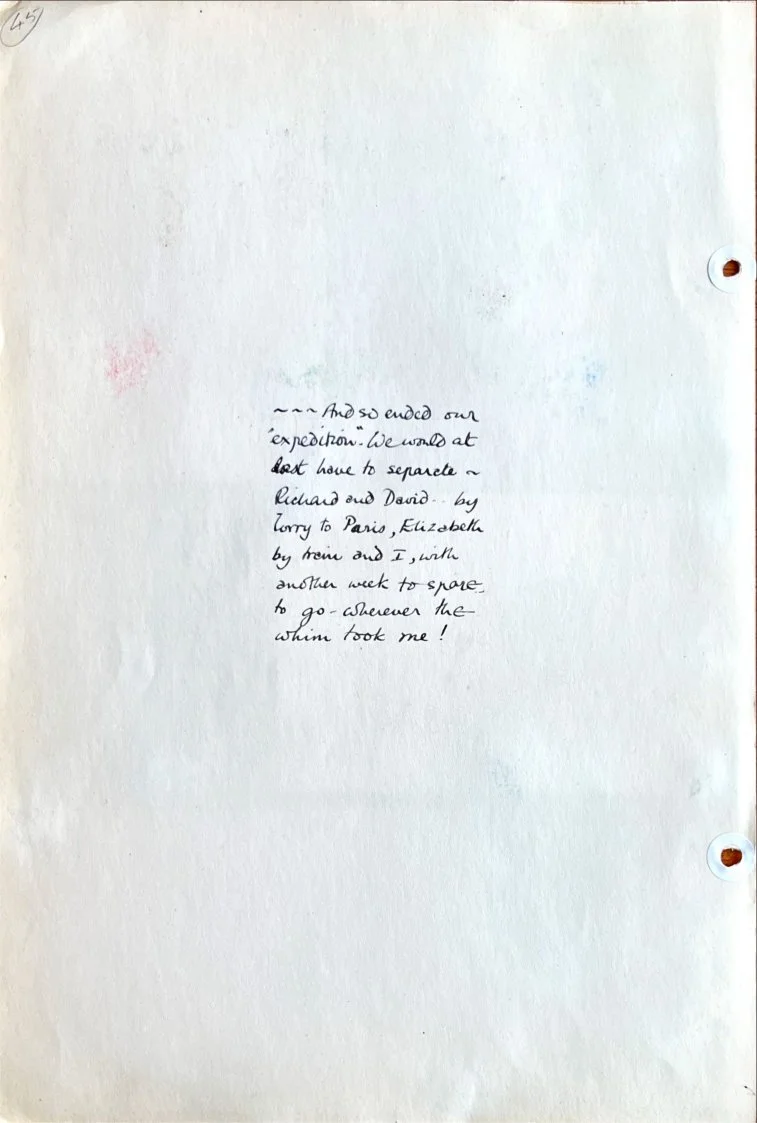 45
~ ~ ~ And so ended our
"expedition". We would at
last have to separate ~
Richard and David .. by
lorry to Paris, Elizabeth
by train and I, with
another week to spare,
to go - wherever the
whim took me !